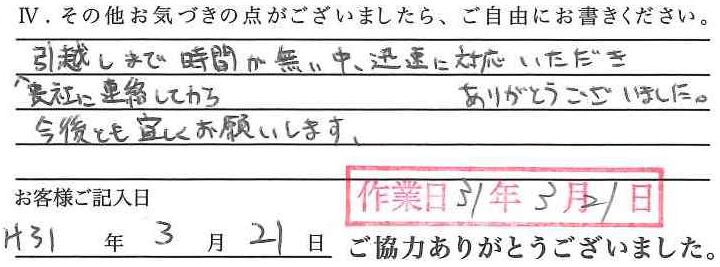 Ⅳ．その他お気づきの点がございましたら、ご自由にお書きください。
引越しまで時間が無い中、迅速に対応いただき
貴社に連絡してから ありがとうございました。
今後とも宜しくお願いします、
お客様ご記入日
作業日 31年 3月 21日
H31 年 3 月 21 日 ご協力ありがとうございました。